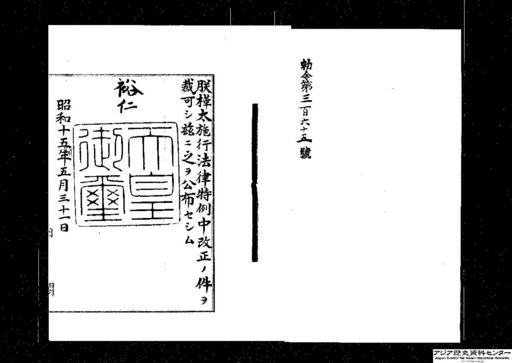 勅令第三百六十五號
朕樺太施行法律特例中改正ノ件ヲ
裁可シ茲ニ之ヲ公布セシム
裕仁
天皇
御璽
昭和十五年五月三十一日
アジア歴史資料センター
Japan Center for Asian Historical Records